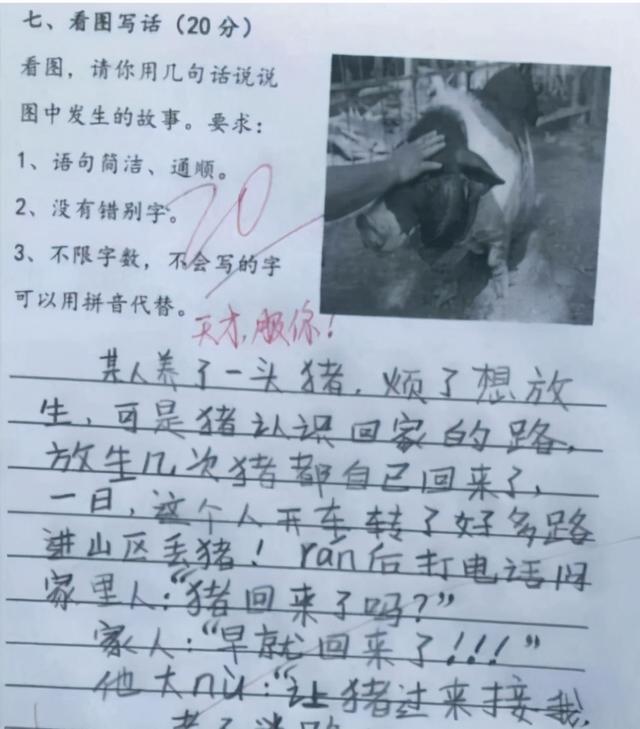 七、看图写话（20分）
看图，请你用几句话说说
图中发生的故事。要求：
1、语句简洁、通顺。
2、没有错别字。
3、不限字数，不会写的字
可以用拼音代替。
20
天才，服你！
某人养了一头猪，烦了想放
生，可是猪认识回家的路，
放生几次猪都自己回来了，
一日，这个人开车转了好多路
进山区丢猪！rán后打电话问
家里人：“猪回来了吗？”
家人：“早就回来了！！！”
他大nù：“让猪过来接我，
老子迷路